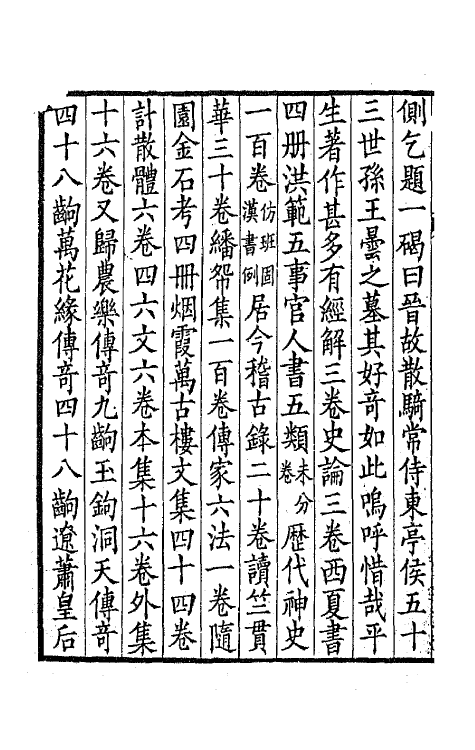 側乞題一碣曰晉故散騎常侍東亭侯五十
三世孫王曇之墓其好奇如此嗚呼惜哉平
生著作甚多有經解三卷史論三卷西夏書
四册洪範五事官人書五類未分卷歴代神史
一百卷仿班固漢書例居今稽古錄二十卷讀竺貫
華三十卷繙帤集一百卷傳家六法一卷隨
園金石考四册烟霞萬古樓文集四十四卷
計散體六卷四六文六卷本集十六卷外集
十六卷又歸農樂傳奇九齣玉鉤洞天傳奇
四十八齣萬花緣傳奇四十八齣遼蕭皇后